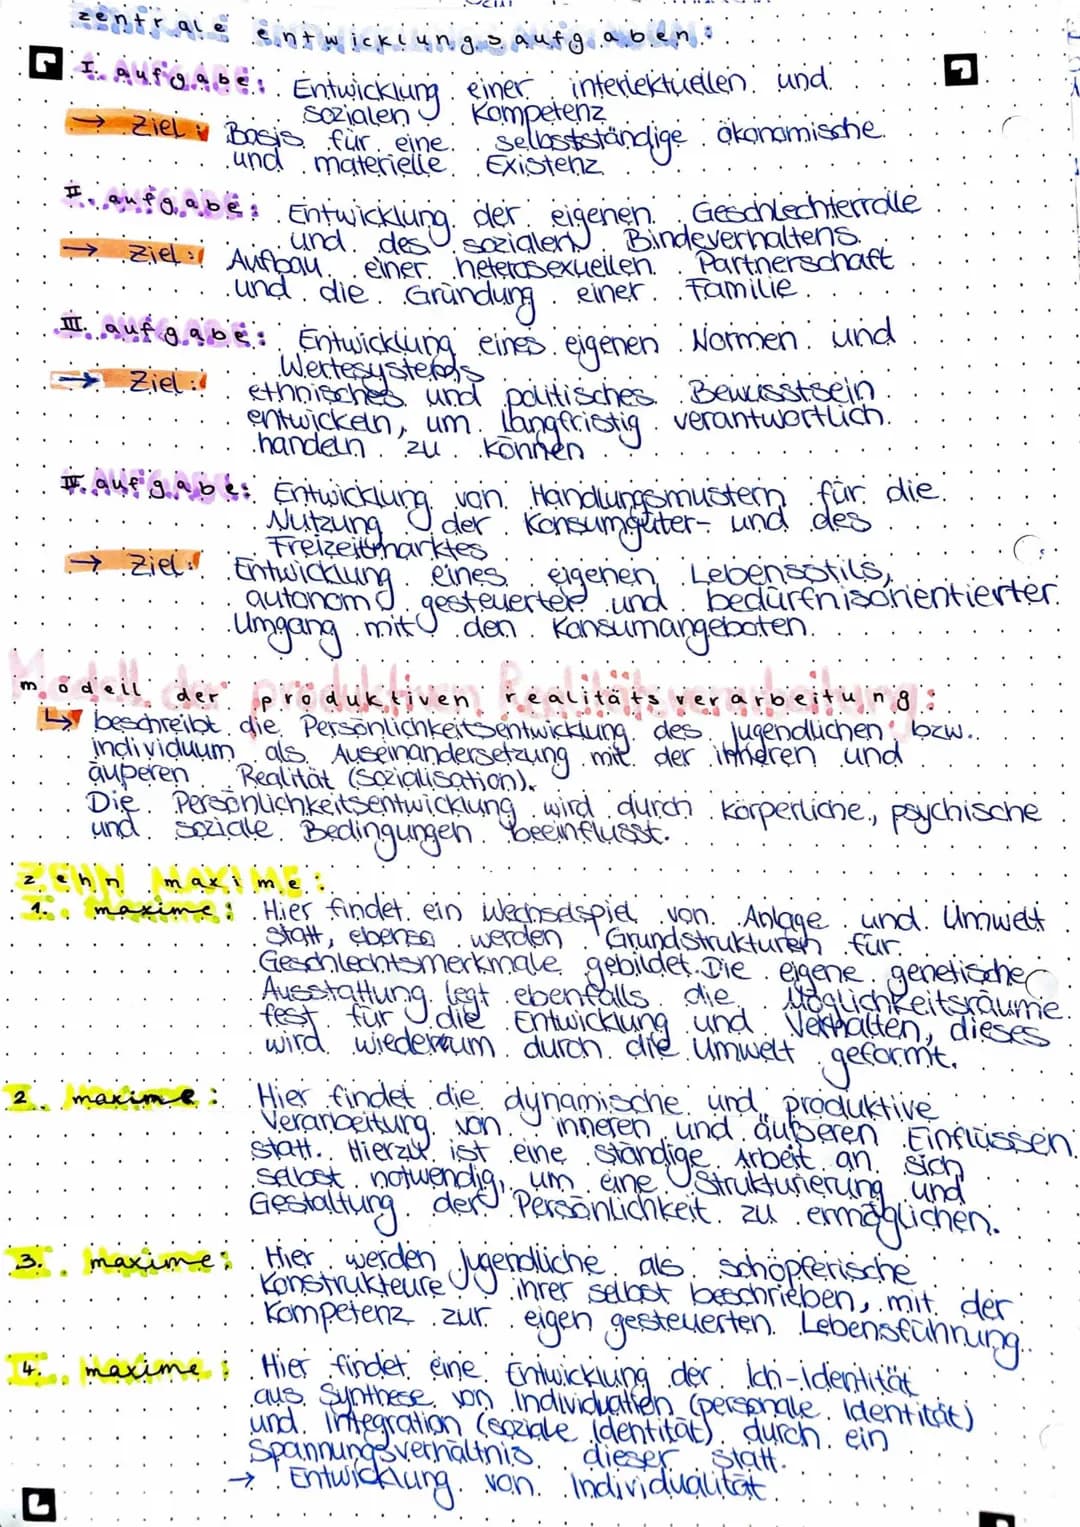 zentrale entwicklungsaufgaben:
I. aufgabe: Entwicklung einer interlektuellen und
sozialen Kompetenz
→ Ziel: Basis für eine selbstständige ökonomische
und materielle Existenz
II. aufgabe: Entwicklung der eigenen Geschlechterrolle
und des sozialen Bindeverhaltens.
→ Ziel: Aufbau einer heterosexuellen Partnerschaft
und die Gründung einer Familie.
III. aufgabe: Entwicklung eines eigenen Normen und
Wertesystems
→ Ziel: ethnisches und politisches Bewusstsein
entwickeln, um langfristig verantwortlich
handeln zu können
IV. aufgabe: Entwicklung von Handlungsmustern für die
Nutzung der Konsumgüter- und des
Freizeitmarktes
→ Ziel: Entwicklung eines eigenen Lebensstils,
autonom gesteuerter und bedürfnisorientierter
Umgang mit den Konsumangeboten.
modell der produktiven realitätsverarbeitung:
↳ beschreibt die Persönlichkeitsentwicklung des jugendlichen bzw.
individuum als Auseinandersetzung mit der inneren und
äußeren Realität (Sozialisation).
Die Persönlichkeitsentwicklung wird durch körperliche, psychische
und soziale Bedingungen beeinflusst.
zehn maxime:
1. maxime: Hier findet ein Wechselspiel von Anlage und Umwelt
statt, ebenso werden Grundstrukturen für
Geschlechtsmerkmale gebildet. Die eigene genetische
Ausstattung legt ebenfalls die Möglichkeitsräume
fest für die Entwicklung und Verhalten, dieses
wird wiederum durch die Umwelt geformt.
2. maxime: Hier findet die dynamische und produktive
Verarbeitung von inneren und äußeren Einflüssen
statt. Hierzu ist eine ständige Arbeit an sich
selbst notwendig, um eine Strukturierung und
Gestaltung der Persönlichkeit zu ermöglichen.
3. maxime: Hier werden Jugendliche als schöpferische
Konstrukteure ihrer selbst beschrieben, mit der
Kompetenz zur eigen gesteuerten Lebensführung.
4. maxime: Hier findet eine Entwicklung der Ich-Identität
aus Synthese von Individuation (personale Identität)
und Integration (soziale Identität) durch ein
Spannungsverhältnis dieser statt.
→ Entwicklung von Individualität